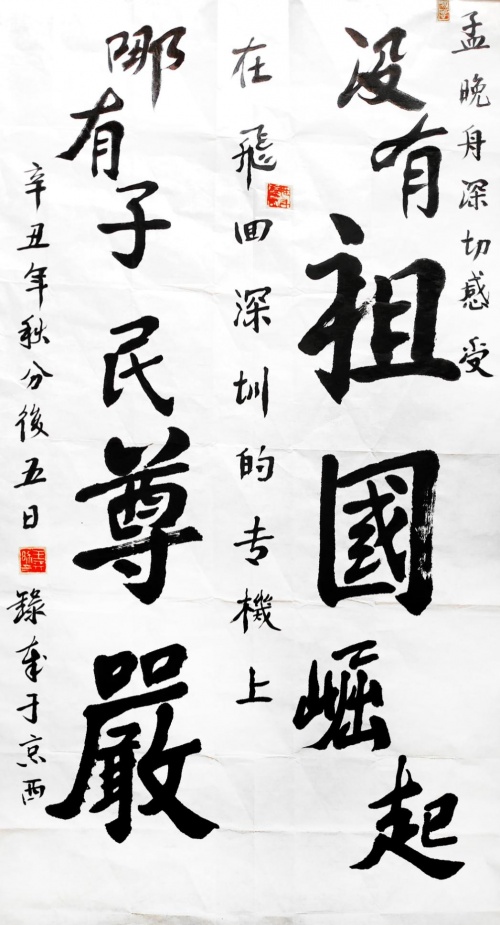 孟晚舟深切感受
没有祖國崛起
在飛回深圳的专機上
哪有子民尊嚴
辛丑年秋分後五日
錄奉于京西